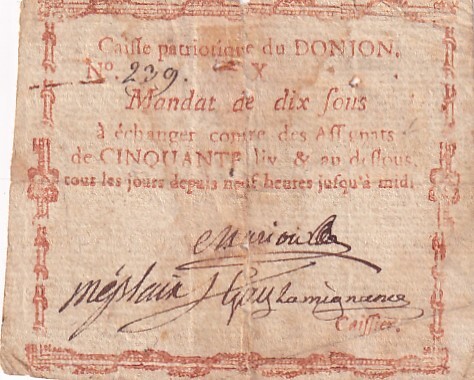 Caisse patriotique du DONJON.
No. 239. X
Mandat de dix sous
à échanger contre des Assignats
de CINQUANTE liv. & au dessous,
tous les jours depuis neuf heures jusqu'à midi.
méplain Gay Lamignance
Caissier.